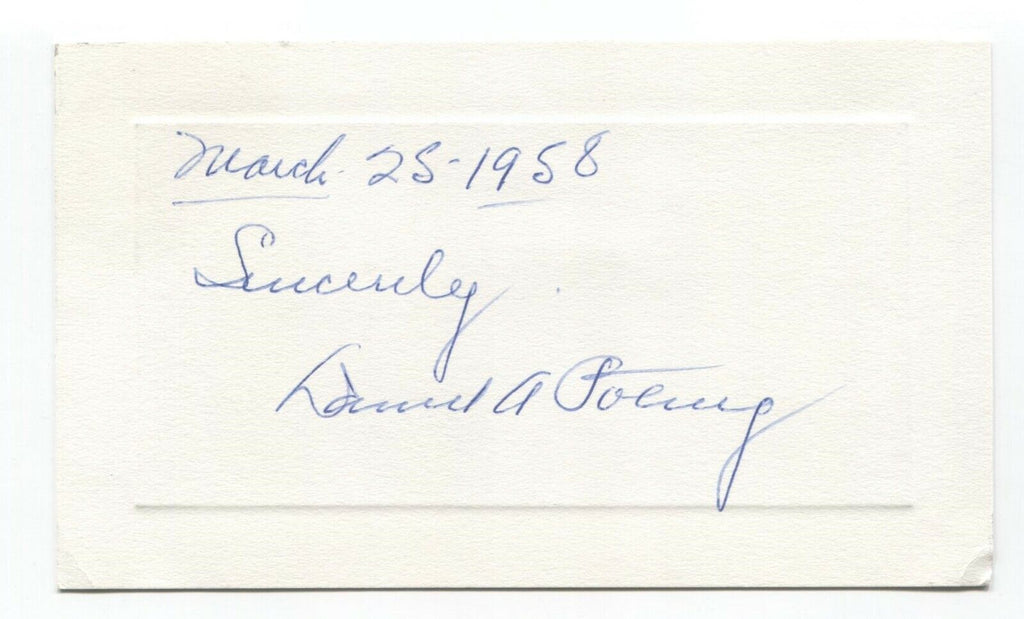 March 25-1958
Sincerely
Daniel A Poling